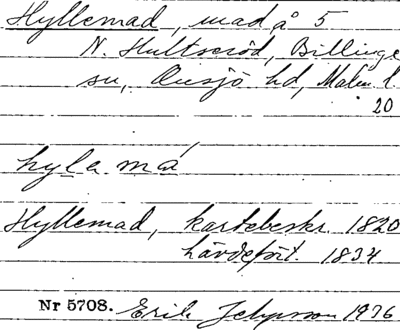 Hyllemad, mad å 5
N. Hultseröd, Billinge
sn, Onsjö hd, Malm. l.
20
hylemá
Hyllemad, kartebeskr. 1820
hävdeført. 1834
Nr 5708. Erik 1976